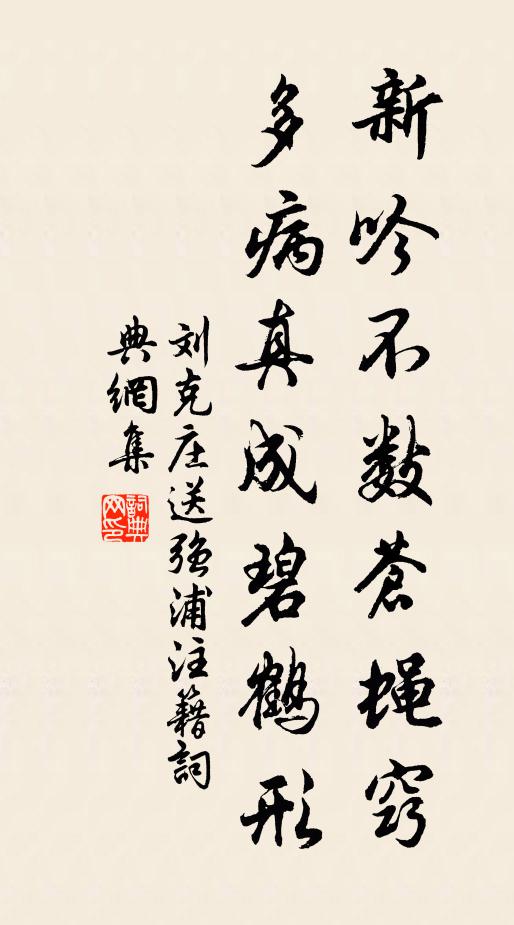 新吟不数苍蝇窍
多病真成碧鹤形
刘克庄送强浦注籍詞
典網集
詞典
网印